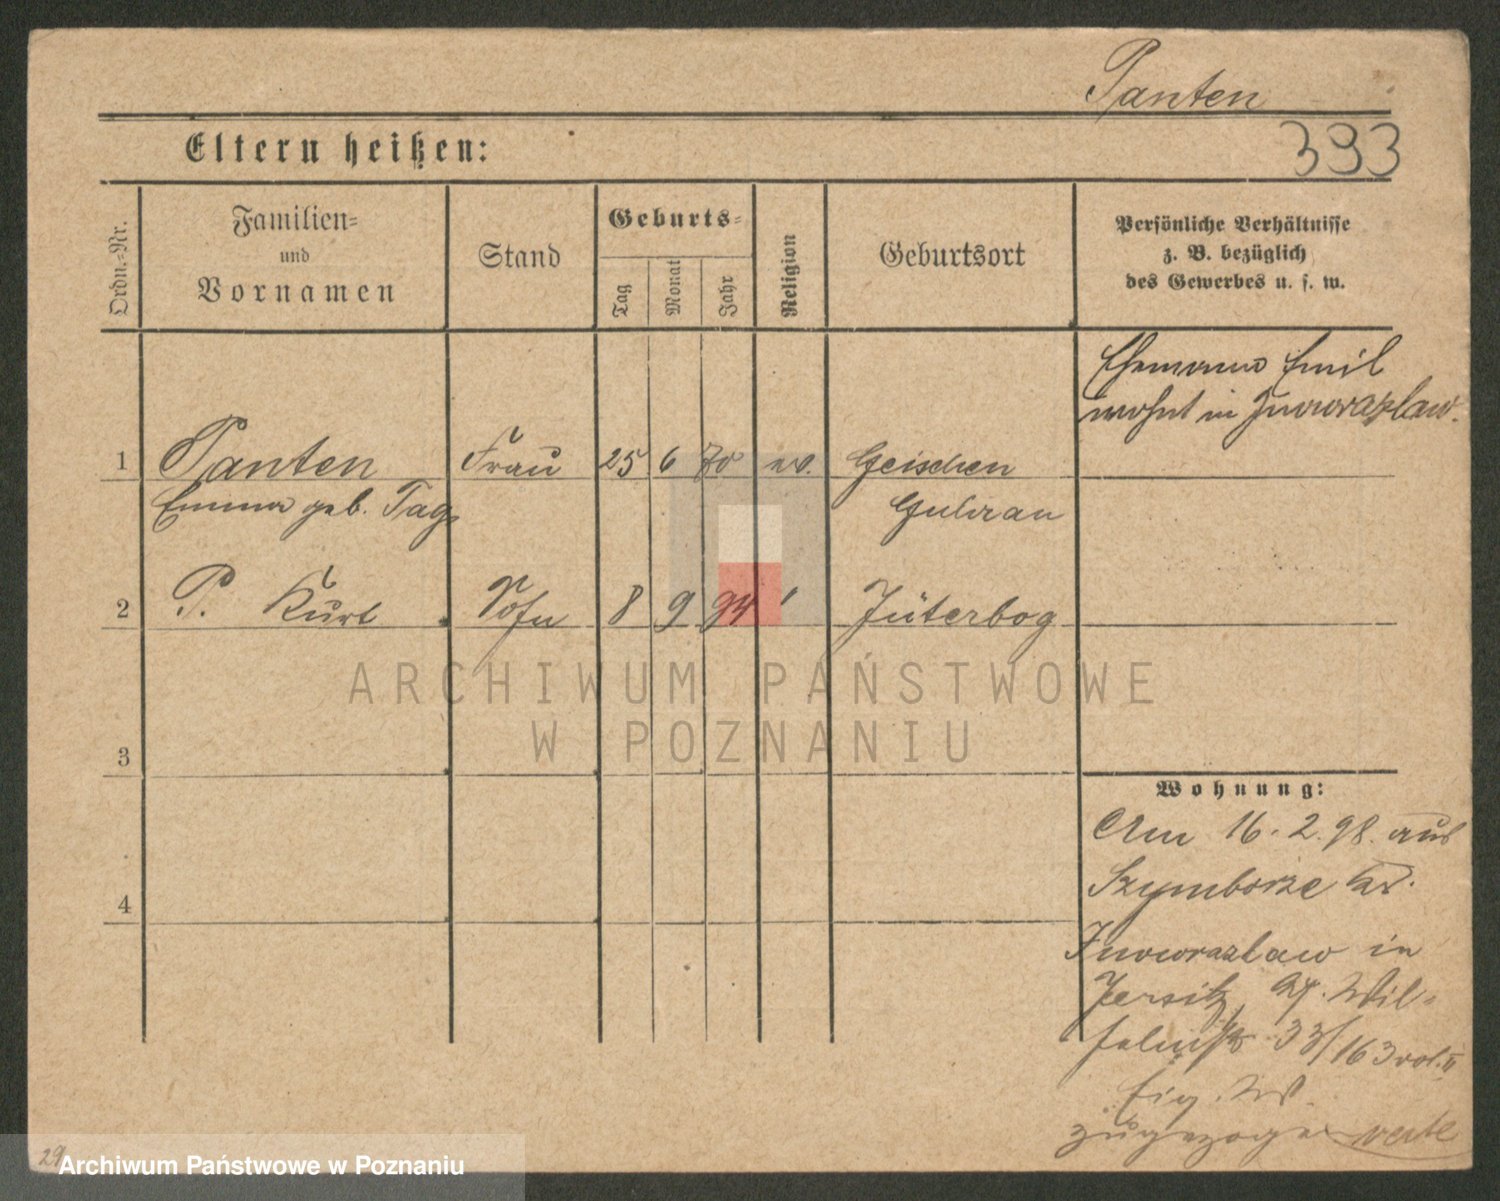 Panten
393
Eltern heißen:
Ordn.-Nr.
Familien-
und
Vornamen
Stand
Geburts-
Tag
Monat
Jahr
Religion
Geburtsort
Persönliche Verhältnisse
z. B. bezüglich
des Gewerbes u. s. w.
Ehemann Emil
wohnt in Inowrazlaw.
1 Panten Frau 25 6 70 ev. Geischen
Emma geb. Tag Guhrau
2 P. Kurt Sohn 8 9 94 " Jüterbog
ARCHIWUM PAŃSTWOWE
W POZNANIU
3
Wohnung:
Am 16.2.98. aus
Szymborze Kr.
4
Inowrazlaw in
Jersitz, Gr. Wil-
helmstr 33/163 vol. II
Eig. W.
zugezogen verte
29
Archiwum Państwowe w Poznaniu